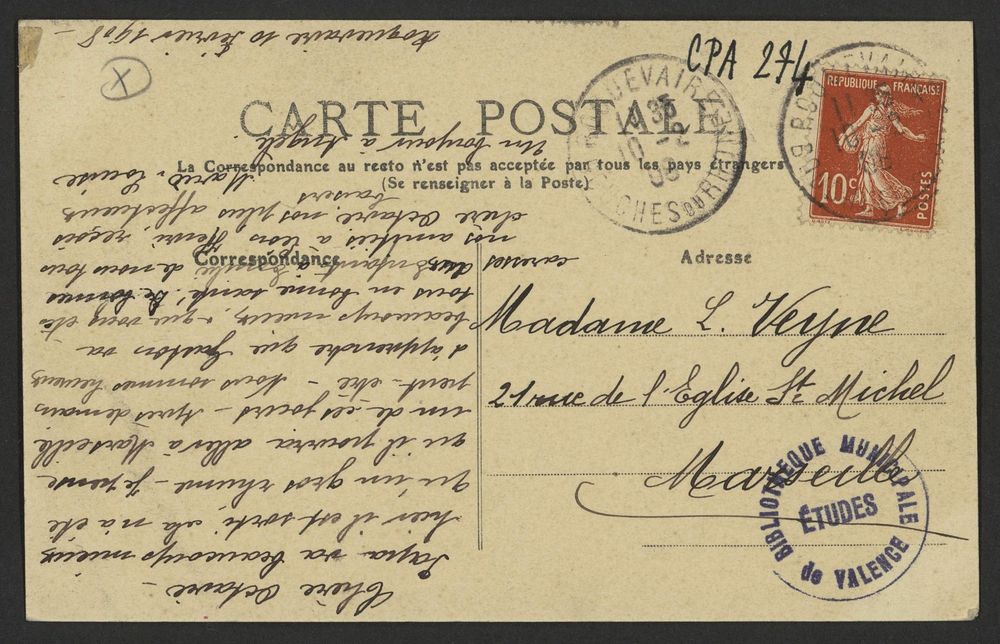 CPA 274
X
CARTE POSTALE
La Correspondance au recto n'est pas acceptée par tous les pays étrangers
(Se renseigner à la Poste)
Correspondance
Adresse
RÉPUBLIQUE FRANÇAISE
10c
POSTES
ROQUEVAIRE
10 -2
08
BCHES DU RHONE
Madame L. Veyne
21 rue de l'Eglise St Michel
Marseille
BIBLIOTHEQUE MUNICIPALE
ÉTUDES
de VALENCE
Roquevaire 10 février 1908 -
Chère Octavie -
Papa va beaucoup mieux
hier il est sorti, cela n'a été
qu'un gros rhume - Je pense
qu'il pourra aller à Marseille
un de ces jours - Après demain
peut-être - Nous sommes heureux
d'apprendre que Gaston va
beaucoup mieux, & que vous êtes
tous en bonne santé. De bonnes
caresses aux enfants à de nous tous
nos amitiés à Henri, reçois
chère Octavie, nos plus affectueux
baisers
Marie-Louise
Un bonjour à Angèle